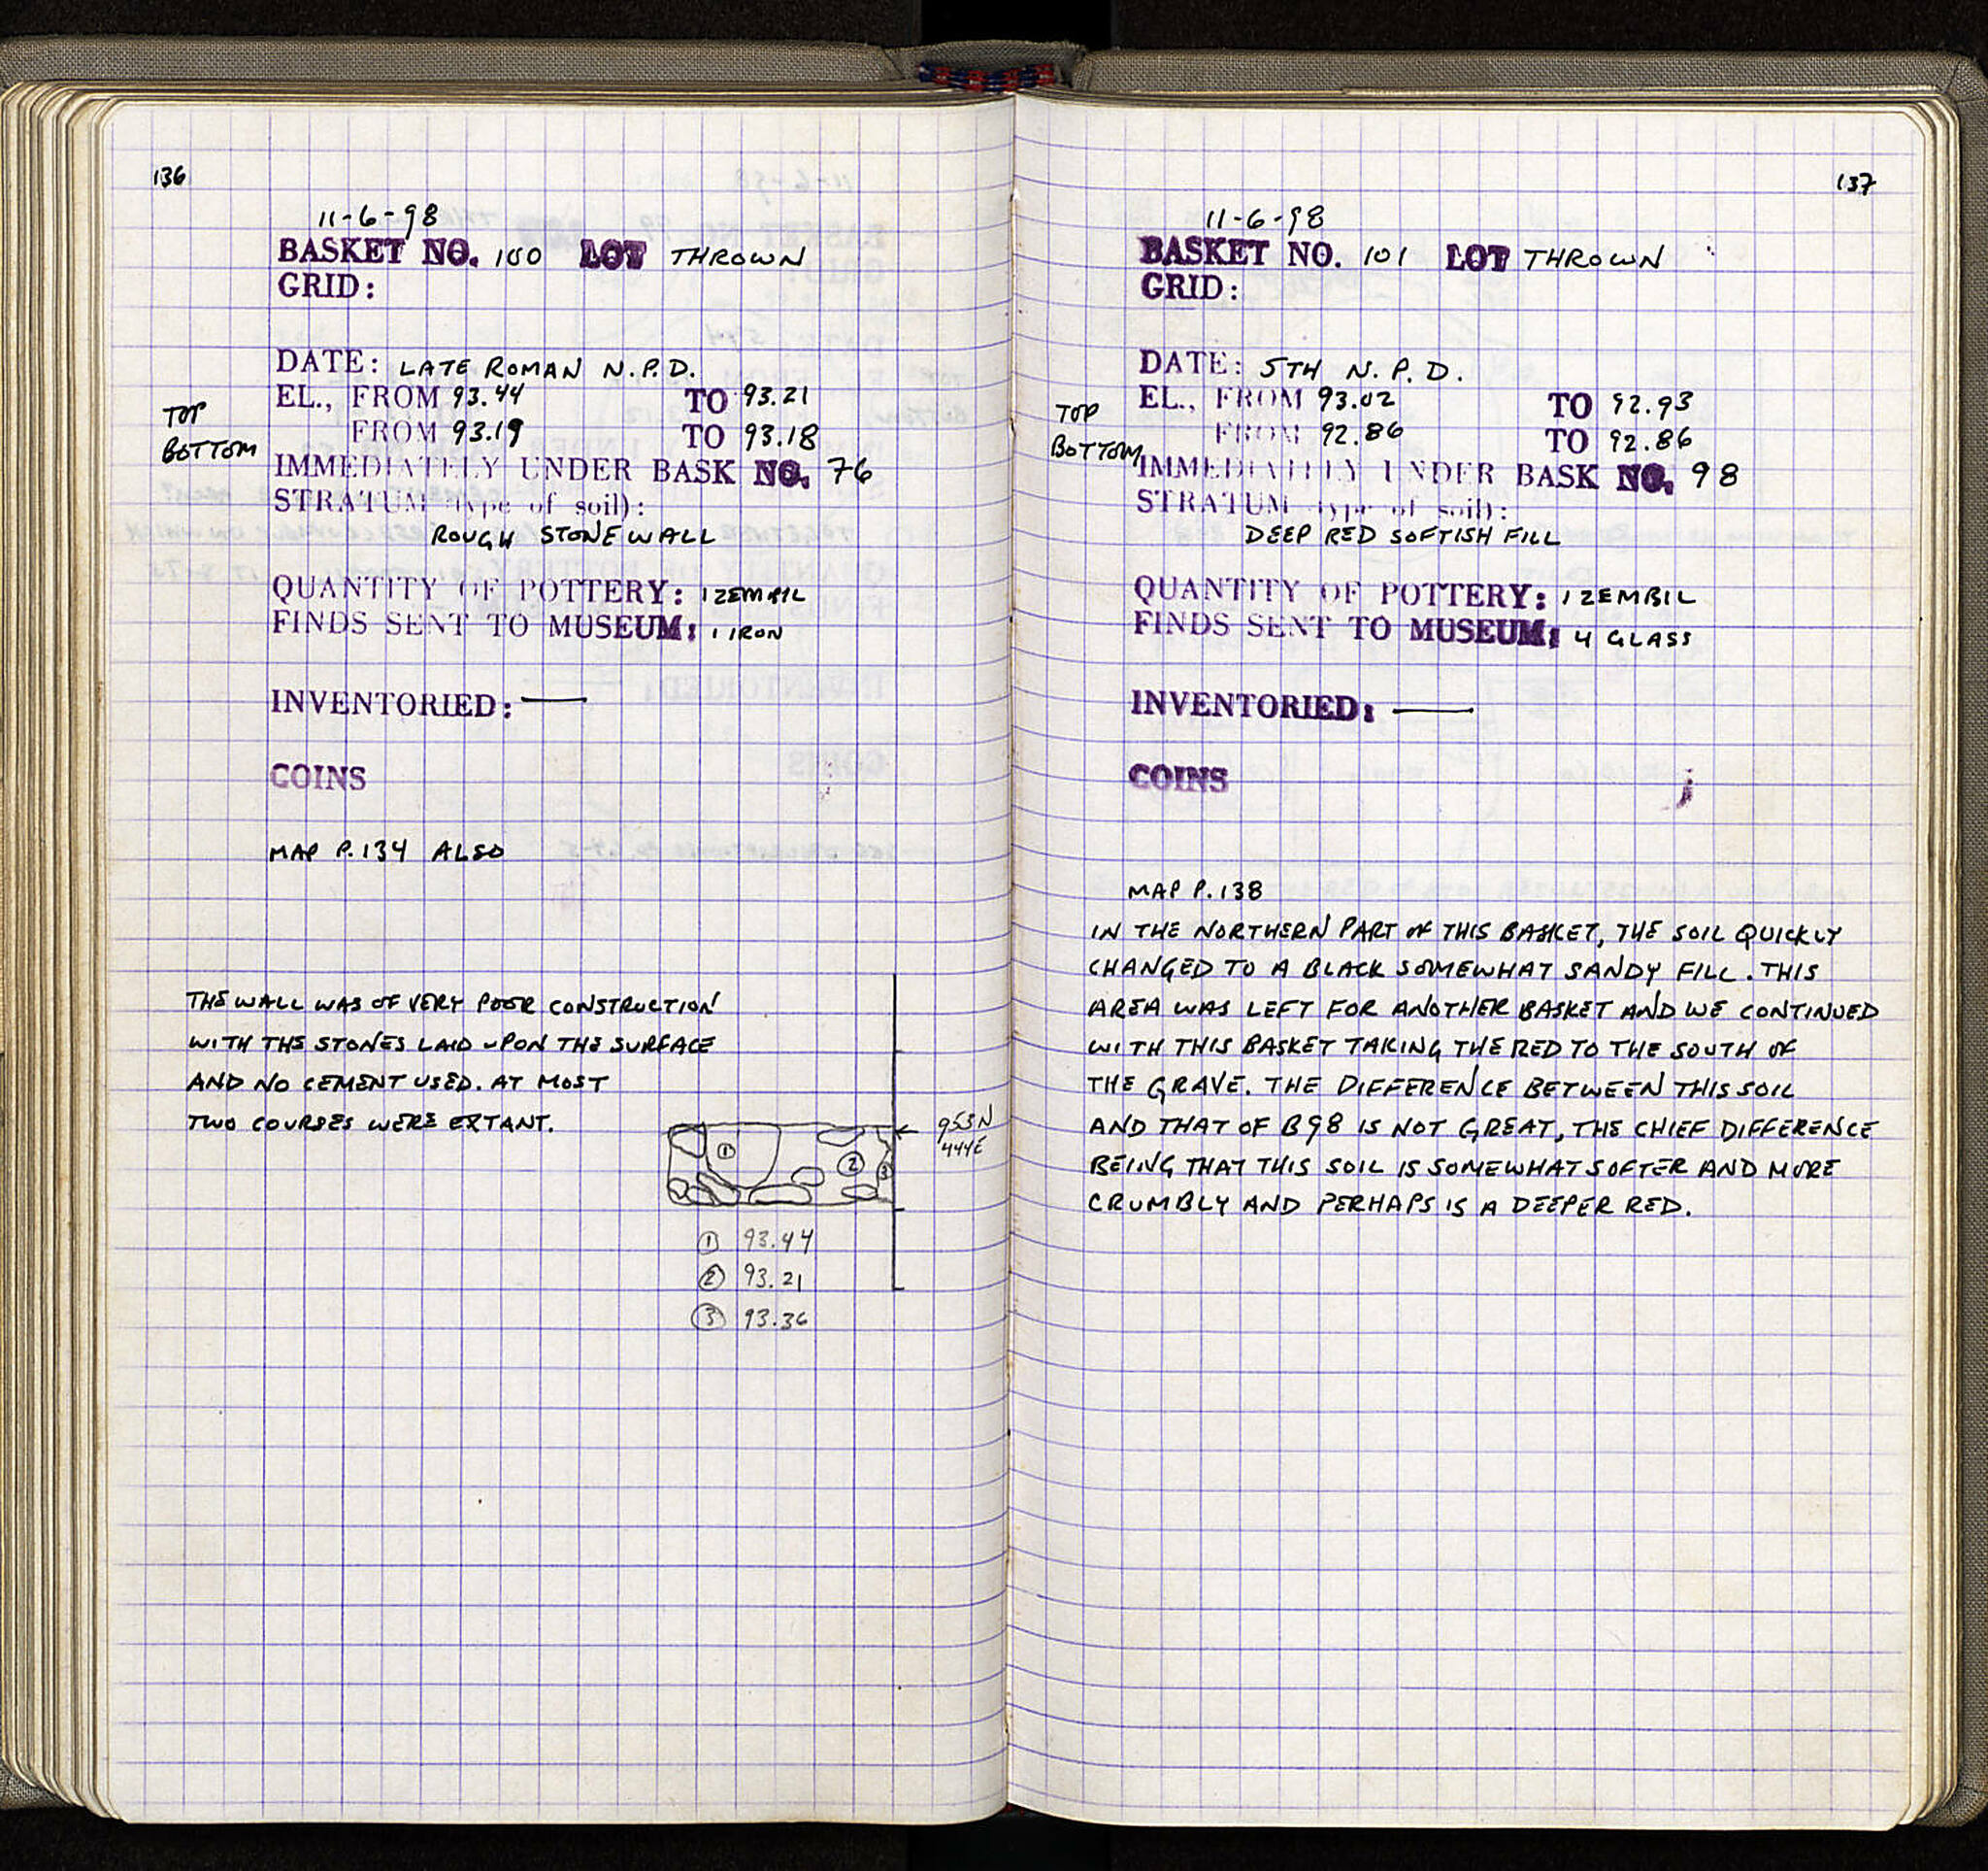 136
11-6-98
BASKET NO. 100 LOT THROWN
GRID:
DATE: LATE ROMAN N.P.D.
TOP EL., FROM 93.44 TO 93.21
BOTTOM FROM 93.19 TO 93.18
IMMEDIATELY UNDER BASK NO. 76
STRATUM (type of soil):
ROUGH STONE WALL
QUANTITY OF POTTERY: 1 ZEMBIL
FINDS SENT TO MUSEUM: 1 IRON
INVENTORIED: —
COINS
MAP P.134 ALSO
THE WALL WAS OF VERY POOR CONSTRUCTION
WITH THE STONES LAID UPON THE SURFACE
AND NO CEMENT USED. AT MOST
TWO COURSES WERE EXTANT.
953N
444E
1
2
3
1 93.44
2 93.21
3 93.36
137
11-6-98
BASKET NO. 101 LOT THROWN
GRID:
DATE: 5TH N.P.D.
TOP EL., FROM 93.02 TO 92.93
BOTTOM FROM 92.86 TO 92.86
IMMEDIATELY UNDER BASK NO. 98
STRATUM (type of soil):
DEEP RED SOFTISH FILL
QUANTITY OF POTTERY: 1 ZEMBIL
FINDS SENT TO MUSEUM: 4 GLASS
INVENTORIED: —
COINS
MAP P.138
IN THE NORTHERN PART OF THIS BASKET, THE SOIL QUICKLY
CHANGED TO A BLACK SOMEWHAT SANDY FILL. THIS
AREA WAS LEFT FOR ANOTHER BASKET AND WE CONTINUED
WITH THIS BASKET TAKING THE RED TO THE SOUTH OF
THE GRAVE. THE DIFFERENCE BETWEEN THIS SOIL
AND THAT OF B98 IS NOT GREAT, THE CHIEF DIFFERENCE
BEING THAT THIS SOIL IS SOMEWHAT SOFTER AND MORE
CRUMBLY AND PERHAPS IS A DEEPER RED.